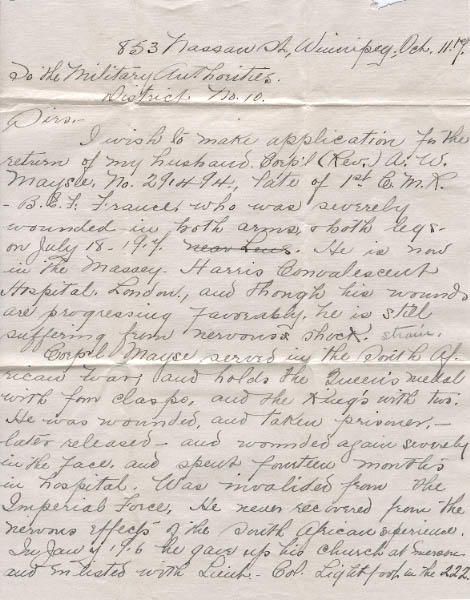 853 Nassau St, Winnipeg, Oct. 11. 17.
To the Military Authorities.
District No. 10.
Sirs.-
I wish to make application for the
return of my husband. Corp'l (Rev.) A. W.
Mayse, No. 291494, late of 1st C. M. R.
- B. E. F. France, who was severely
wounded in both arms, & both legs -
on July 18 - 1917. near Lens. He is now
in the Massey. Harris Convalescent
Hospital. London., and though his wounds
are progressing favorably, he is still
suffering from nervous shock strain.
Corp'l Mayse, served in the South Af-
rican War, and holds the Queen's medal
with four clasps, and the King's with two.
He was wounded, and taken prisoner, -
later released - and wounded again severely
in the face, and spent fourteen months
in hospital. Was invalided from the
Imperial Force. He never recovered from the
nervous effects of the South African experience.
In Jan'y 1916 he gave up his church at Emerson
and enlisted with Lieut - Col. Lightfoot in the 222